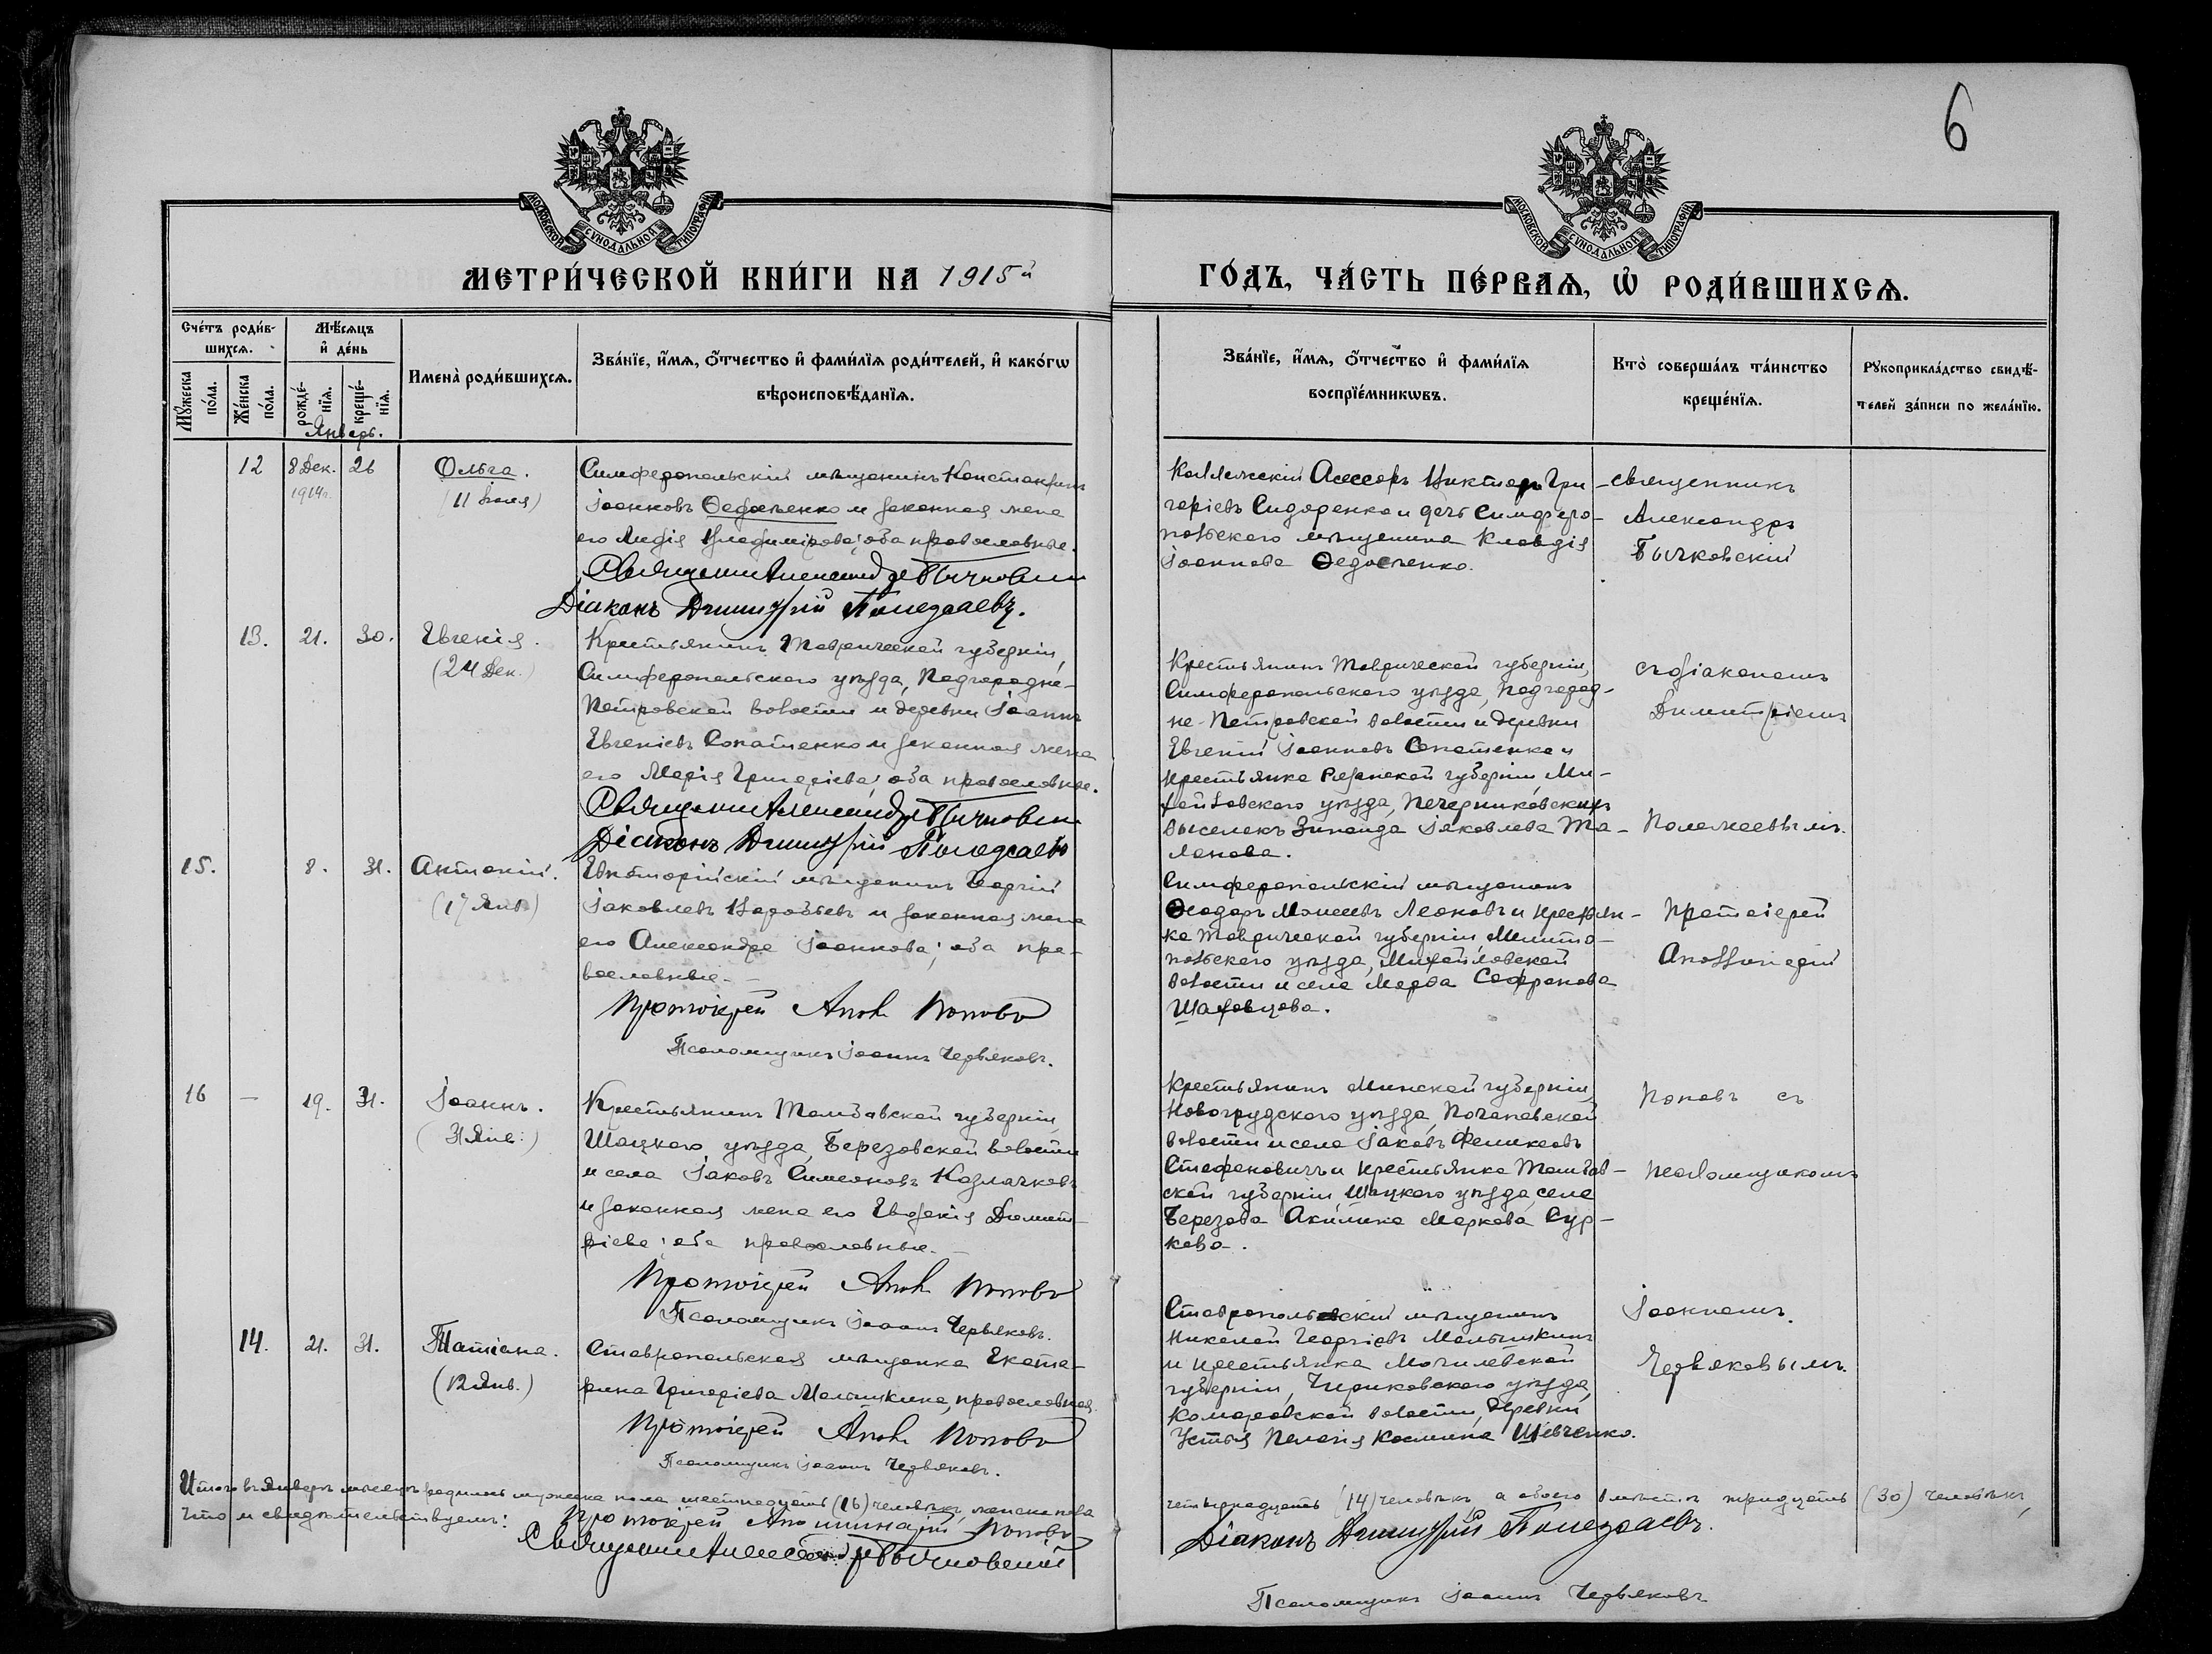 6
МОСКОВСКОЙ СУНОДАЛЬНОЙ ТИПОГРАФІИ
МОСКОВСКОЙ СУНОДАЛЬНОЙ ТИПОГРАФІИ
МЕТРИ́ЧЕСКОЙ КНИ́ГИ НА 1915й
ГО́ДЪ, ЧА́СТЬ ПЕ́РВАѦ, Ѡ҆ РОДИ́ВШИХСѦ.
Сче́тъ роди́в-
шихсѧ.
Мѣ́сяцъ
и҆ де́нь
Мꙋ́жеска по́ла.
Же́нска по́ла.
рожде́-нїѧ.
креще́-нїѧ.
Имена̀ роди́вшихсѧ.
Зва́нїе, и҆́мѧ, ѻ҆́тчество и҆ фами́лїѧ роди́телей, и҆ како́гѡ
вѣроисповѣ́данїѧ.
Зва́нїе, и҆́мѧ, ѻ҆́тчество и҆ фами́лїѧ
воспрїе́мникѡвъ.
Кто̀ соверша́лъ та́инство
креще́нїѧ.
Рꙋкоприкла́дство свидѣ́-
телей за́писи по жела́нїю.
Январь.
12 8 Дек. 26 Ольга.
1914г.
(11 Іюля)
Симферопольскій мѣщанинъ Константинъ
Іоанновъ Ѳедосѣенко и законная жена
его Лидія Владимірова; оба православные.
Священникъ Александръ Бычковскій
Діаконъ Димитрій Полежаевъ.
Коллежскій Асессоръ Викторъ Гри-
горіевъ Сидоренко и дочь Симферо-
польскаго мѣщанина Клавдія
Іоаннова Ѳедосѣенко.
священникъ
Александръ
Бычковскій
13. 21. 30. Евгенія.
(24 Дек.)
Крестьянинъ Таврической губерніи,
Симферопольскаго уѣзда, Подгородне-
Петровской волости и деревни Іоаннъ
Евгеніевъ Сопатенко и законная жена
его Марія Григоріева; оба православные.
Священникъ Александръ Бычковскій
Діаконъ Димитрій Полежаевъ
Крестьянинъ Таврической губерніи,
Симферопольскаго уѣзда, Подгород-
не-Петровской волости и деревни
Евгеній Іоанновъ Сопатенко и
крестьянка Рязанской губерніи, Ми-
хайловскаго уѣзда, Печерниковскихъ
выселокъ Зинаида Іаковлева Та-
ланова.
съ діакономъ
Димитріемъ
Полежаевымъ.
15. 8. 31. Антоній.
(17 Янв.)
Евпаторійскій мѣщанинъ Георгій
Іаковлевъ Воробьевъ и законная жена
его Александра Іоаннова; оба пра-
вославные.
Протоіерей Апол. Поповъ
Псаломщикъ Іоаннъ Червяковъ.
Симферопольскій мѣщанинъ
Ѳеодоръ Моисеевъ Леоновъ и крестьян-
ка Таврической губерніи, Мелито-
польскаго уѣзда, Михайловской
волости и села Марѳа Софронова
Шаховцова.
Протоіерей
Аполлинарій
16 — 19. 31. Іоаннъ.
(31 Янв.)
Крестьянинъ Тамбовской губерніи,
Шацкаго уѣзда, Березовской волости
и села Іаковъ Симеоновъ Козлачковъ
и законная жена его Евдокія Димит-
ріева; оба православные.
Протоіерей Апол. Поповъ
Псаломщикъ Іоаннъ Червяковъ.
Крестьянинъ Минской губерніи,
Новогрудскаго уѣзда, Почаповской
волости и села Іаковъ Феликсовъ
Стефановичъ и крестьянка Тамбов-
ской губерніи Шацкаго уѣзда, села
Березова Акилина Маркова Сур-
кова.
Поповъ съ
псаломщикомъ
14. 21. 31. Татіана.
(12 Янв.)
Ставропольская мѣщанка Екате-
рина Григоріева Малышкина, православная.
Протоіерей Апол. Поповъ
Псаломщикъ Іоаннъ Червяковъ.
Ставропольскій мѣщанинъ
Николай Георгіевъ Малышкинъ
и крестьянка Могилевской
губерніи, Чериковскаго уѣзда,
Комаровской волости, деревни
Устья Пелагія Космина Шевченко.
Іоанномъ
Червяковымъ.
Итого въ Январѣ мѣсяцѣ родилось мужеска пола шестнадцать (16) человѣкъ, женска пола
четырнадцать (14) человѣкъ, а обоего вмѣстѣ тридцать (30) человѣкъ,
что и свидѣтельствуемъ: Протоіерей Аполлинарій Поповъ
Священникъ Александръ Бычковскій
Діаконъ Димитрій Полежаевъ.
Псаломщикъ Іоаннъ Червяковъ